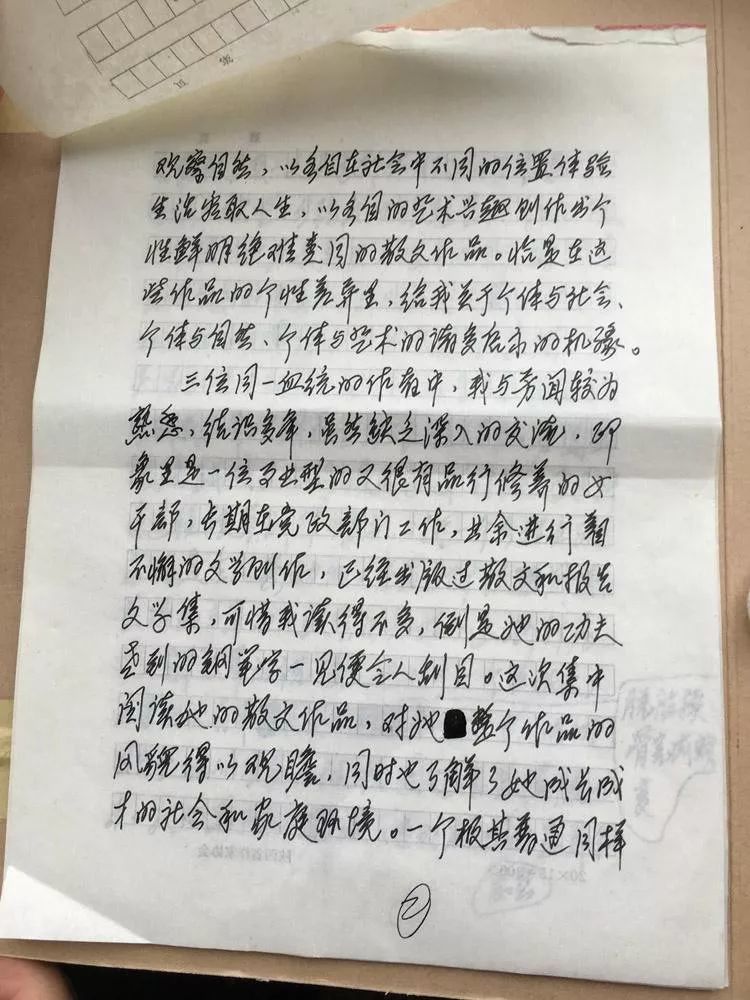 页 第
观察自然，以各自在社会中不同的位置体验
生活摄取人生，以各自的艺术兴趣创作出个
性鲜明绝难类同的散文作品。恰是在这
些作品的个性差异里，给我关于个体与社会、
个体与自然、个体与艺术的诸多启示的机缘。
三位同一血统的作者中，我与芳闻较为
熟悉，结识多年，虽然缺乏深入的交流，印
象里是一位可典型的又很有品行修养的女
干部，长期在党政部门工作，业余进行着
不懈的文学创作，已经出版过散文和报告
文学集，可惜我读得不多，倒是她的功夫
老到的钢笔字一见便令人刮目。这次集中
阅读她的散文作品，对她整个作品的
风貌得以观瞻，同时也了解了她成长成
才的社会和家庭环境。一个极其普通同样
陕西省作家协会
20×15=300
②